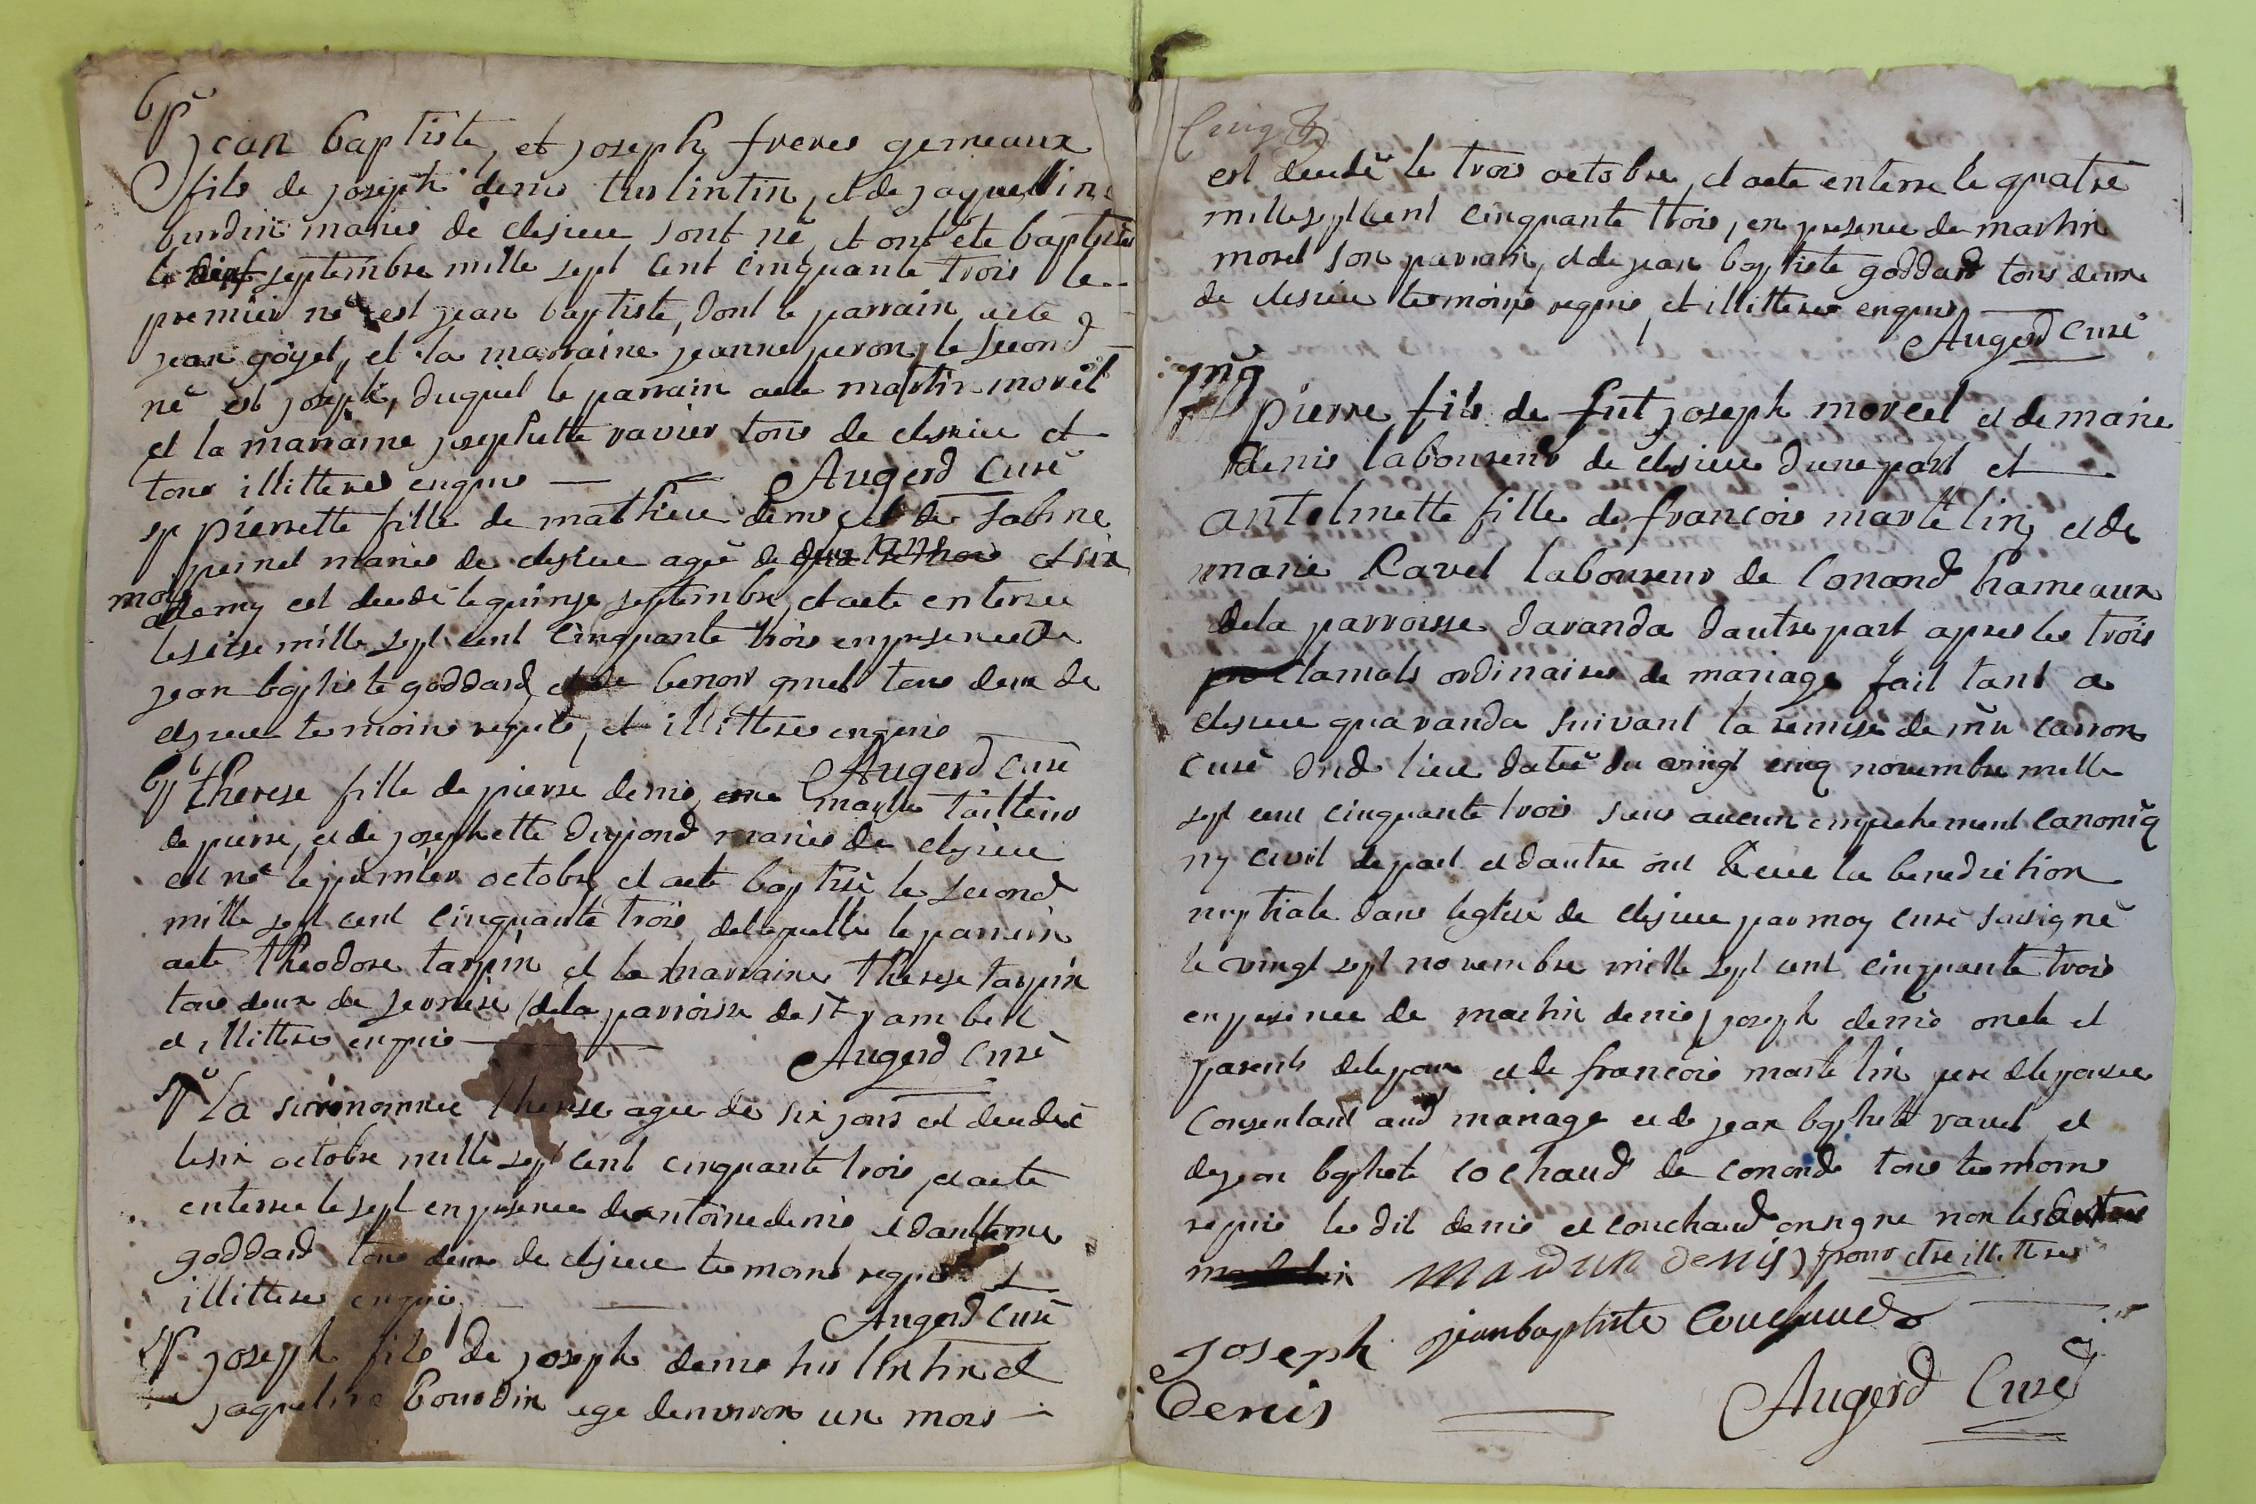 bp
jean baptiste, et joseph freres gemeaux
fils de joseph denis tuslintin, et de jaquelline
burdin maries de clesieu sont né, et ont éte baptises
le septembre mille sept cent cinquante trois le
premier né est jean baptiste, dont le parrain aete
jean goyet, et la marraine jeanne peron, le second
né est joseph, duquel le parrain aete martin morel
et la marraine josephette ravier tous de clesieu et
tous illitteres enquis
Augerd curé
sp pierrette fille de mathieu denis et de sabine
perinet maries de clesieu agée de et six
mois
demy est decedé le quinze septembre, et aete enterree
le seise mille sept cent cinquante trois en presence de
jean baptiste goddard et de benoit tous deux de
clesieu temoins requis, et illitteres enquis
Augerd curé
bp therese fille de pierre denis, maitre tailleur
de pierre, et de josephette dupond maries de clesieu
est né le premier octobre et aete baptisé le second
mille sept cent cinquante trois delaquelle le parrain
aete theodore tarpin et la marraine therese tarpin
tous deux de serriere de la parroisse de st rambert
et illitteres enquis
Augerd curé
sp la surnommee therese agee de six jours est decedée
le six octobre mille sept cent cinquante trois, et aete
enterree le sept en presence de antoine denis et dantelme
goddard tous deux de clesieu temoins requis et
illitteres enquis
Augerd curé
sp joseph fils de joseph denis tuslintin et
jaqueline bourdin age denviron un mois
Cinq
est decedé le trois octobre, et aete enterre le quatre
mille sept cent cinquante trois, en presence de martin
morel son parrain, et de jean baptiste goddard tous deux
de clesieu temoins requis, et illitteres enquis
Augerd curé
mg
pierre fils de fut joseph morcel et de marie
denis laboureur de clesieu dune part et
antelmette fille de francois martelin et de
marie ravel laboureur de Conand hameaux
de la parroisse daranda dautre part apres les trois
proclamats ordinaires de mariage fait tant a
clesieu quaranda suivant la remise de mr carron
curé dud lieu datée du vingt cinq novembre mille
sept cent cinquante trois sans aucun empechement canoniq
ny civil de part et dautre ont receu la benediction
nuptiale dans leglise de clesieu par moy curé sousigné
le vingt sept novembre mille sept cent cinquante trois
en presence de martin denis, joseph denis oncle et
parents delepoux et de francois martelin pere delepouse
consentant aud mariage et de jean baptiste ravel et
de jean baptiste cochaud de conand tous temoins
requis les dit denis et couchaud on signe non les autres
martin denis pour etre illitteres
joseph jeanbaptiste Couchaud
denis
Augerd Curé